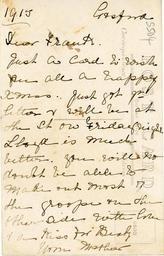 1915 Cosford
Dear Frank.
Just a Card to Wish
you all a Happy
Xmas. Just got yr
letter & will be at
the St on Friday night
Lloyd is much
better. You will no
doubt be able to
make out most of
the group on the
other side with love
Kiss for
from Mother